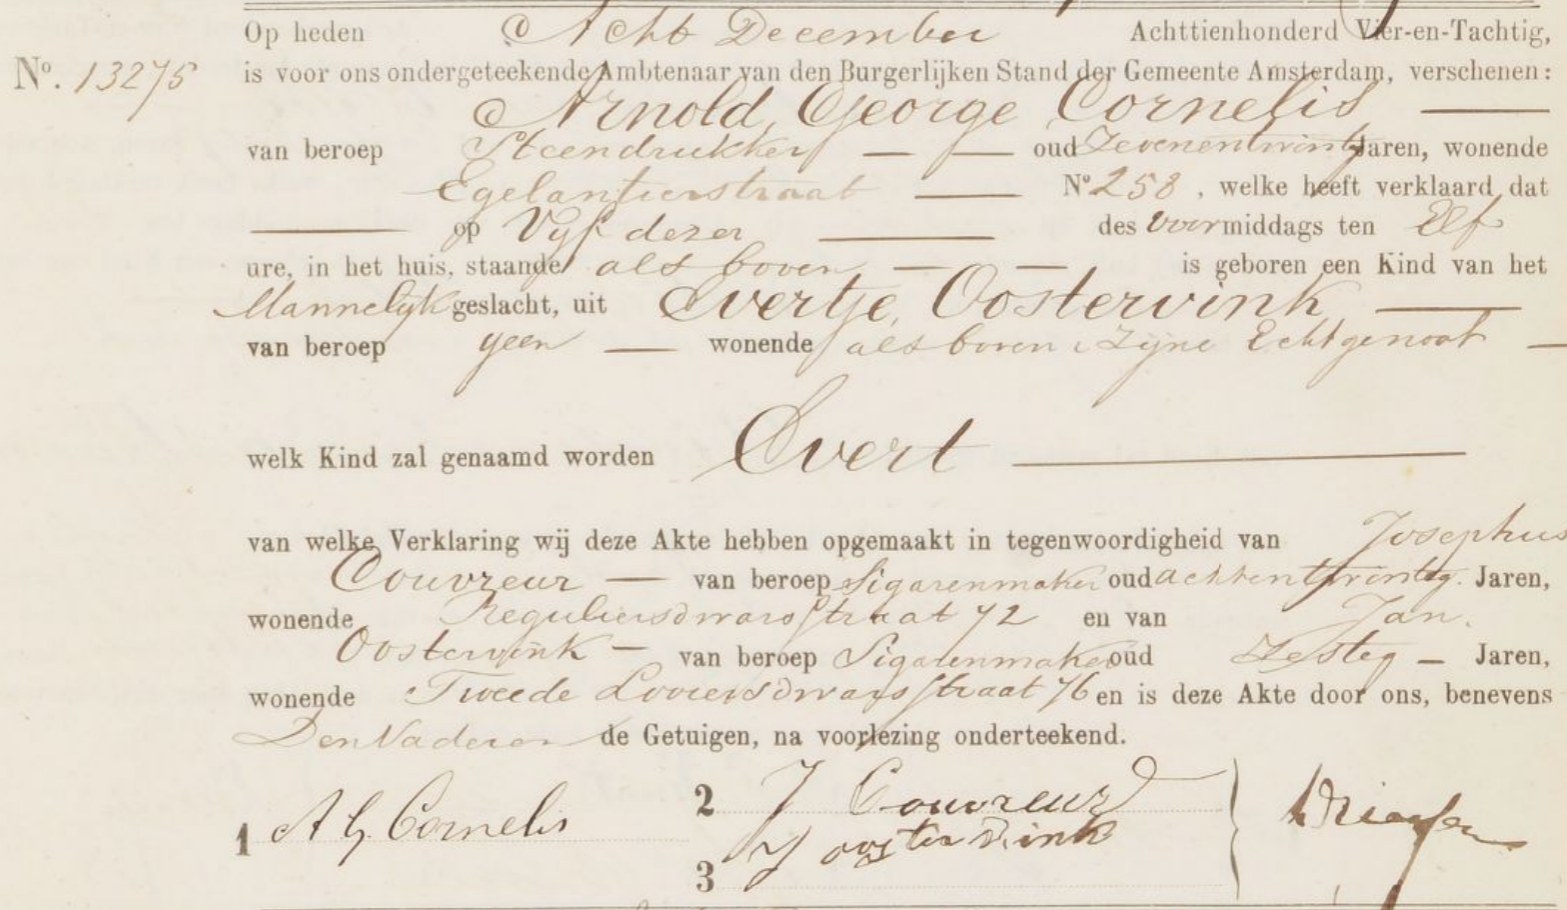 Op heden Acht December Achttienhonderd Vier-en-Tachtig,
No. 13275 is voor ons ondergeteekende Ambtenaar van den Burgerlijken Stand der Gemeente Amsterdam, verschenen:
Arnold George Cornelis
van beroep Steendrukker oud Zevenentwintig Jaren, wonende
Egelantierstraat No 258, welke heeft verklaard dat
op Vijf dezer des Voormiddags ten Elf
ure, in het huis, staande als boven is geboren een Kind van het
Mannelijk geslacht, uit Evertje Oostervink
van beroep geen wonende als boven, Zijne Echtgenoot
welk Kind zal genaamd worden Evert
van welke Verklaring wij deze Akte hebben opgemaakt in tegenwoordigheid van Josephus
Couvreur van beroep Sigarenmaker oud achtentwintig Jaren,
wonende Reguliersdwarsstraat 72 en van Jan
Oostervink van beroep Sigarenmaker oud Zesteg Jaren,
wonende Tweede Looiersdwarsstraat 76 en is deze Akte door ons, benevens
Den Vader en de Getuigen, na voorlezing onderteekend.
1 A G Cornelis
2 J Couvreur
3 J oosterwink